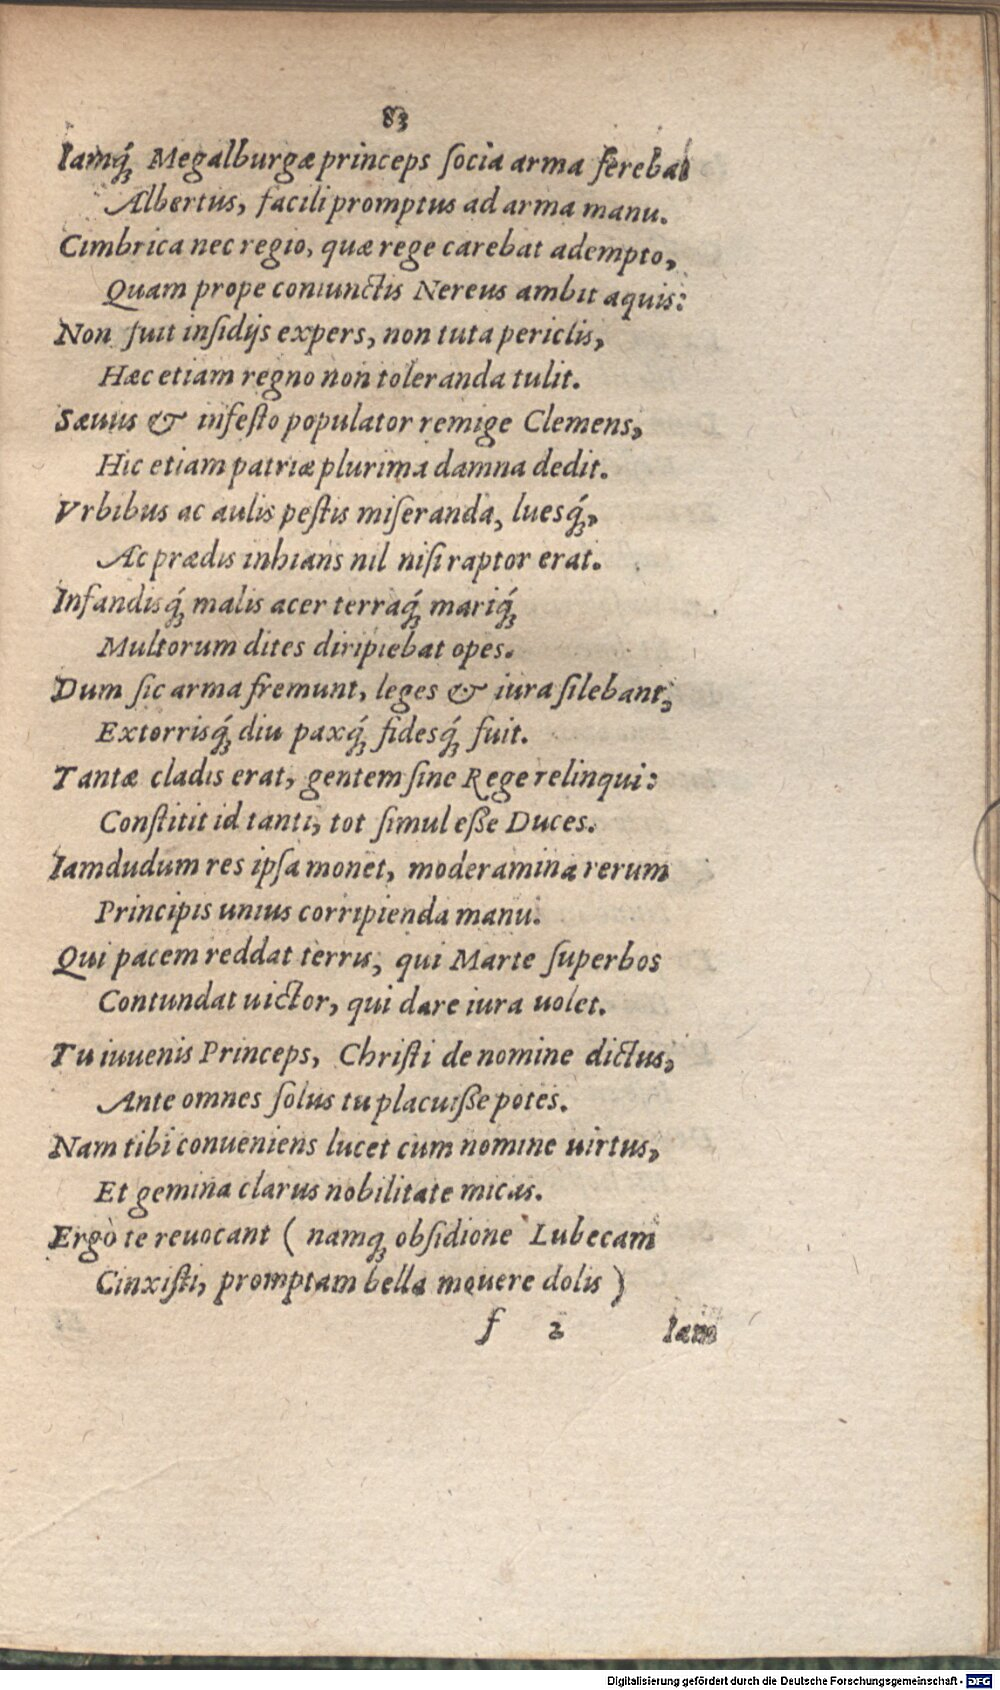 83
Iamq́ꝫ Megalburgæ princeps ſocia arma ferebat
Albertus, facili promptus ad arma manu.
Cimbrica nec regio, quæ rege carebat adempto,
Quam prope coniunctis Nereus ambit aquis:
Non fuit inſidijs expers, non tuta periclis,
Hæc etiam regno non toleranda tulit.
Sæuus & infeſto populator remige Clemens,
Hic etiam patriæ plurima damna dedit.
Vrbibus ac aulis peſtis miſeranda, luesq́ꝫ,
Ac prædis inhians nil niſi raptor erat.
Infandisq́ꝫ malis acer terraq́ꝫ mariq́ꝫ
Multorum dites diripiebat opes.
Dum ſic arma fremunt, leges & iura ſilebant,
Extorrisq́ꝫ diu paxq́ꝫ fidesq́ꝫ fuit.
Tantæ cladis erat, gentem ſine Rege relinqui:
Conſtitit id tanti, tot ſimul eſſe Duces.
Iamdudum res ipſa monet, moderamina rerum
Principis unius corripienda manu.
Qui pacem reddat terris, qui Marte ſuperbos
Contundat uictor, qui dare iura uolet.
Tu iuuenis Princeps, Chriſti de nomine dictus,
Ante omnes ſolus tu placuiſſe potes.
Nam tibi conueniens lucet cum nomine uirtus,
Et gemina clarus nobilitate micas.
Ergò te reuocant ( namqꝫ obſidione Lubecam
Cinxiſti, promptam bella mouere dolis )
f 2 Iam
Digitalisierung gefördert durch die Deutsche Forschungsgemeinschaft - DFG